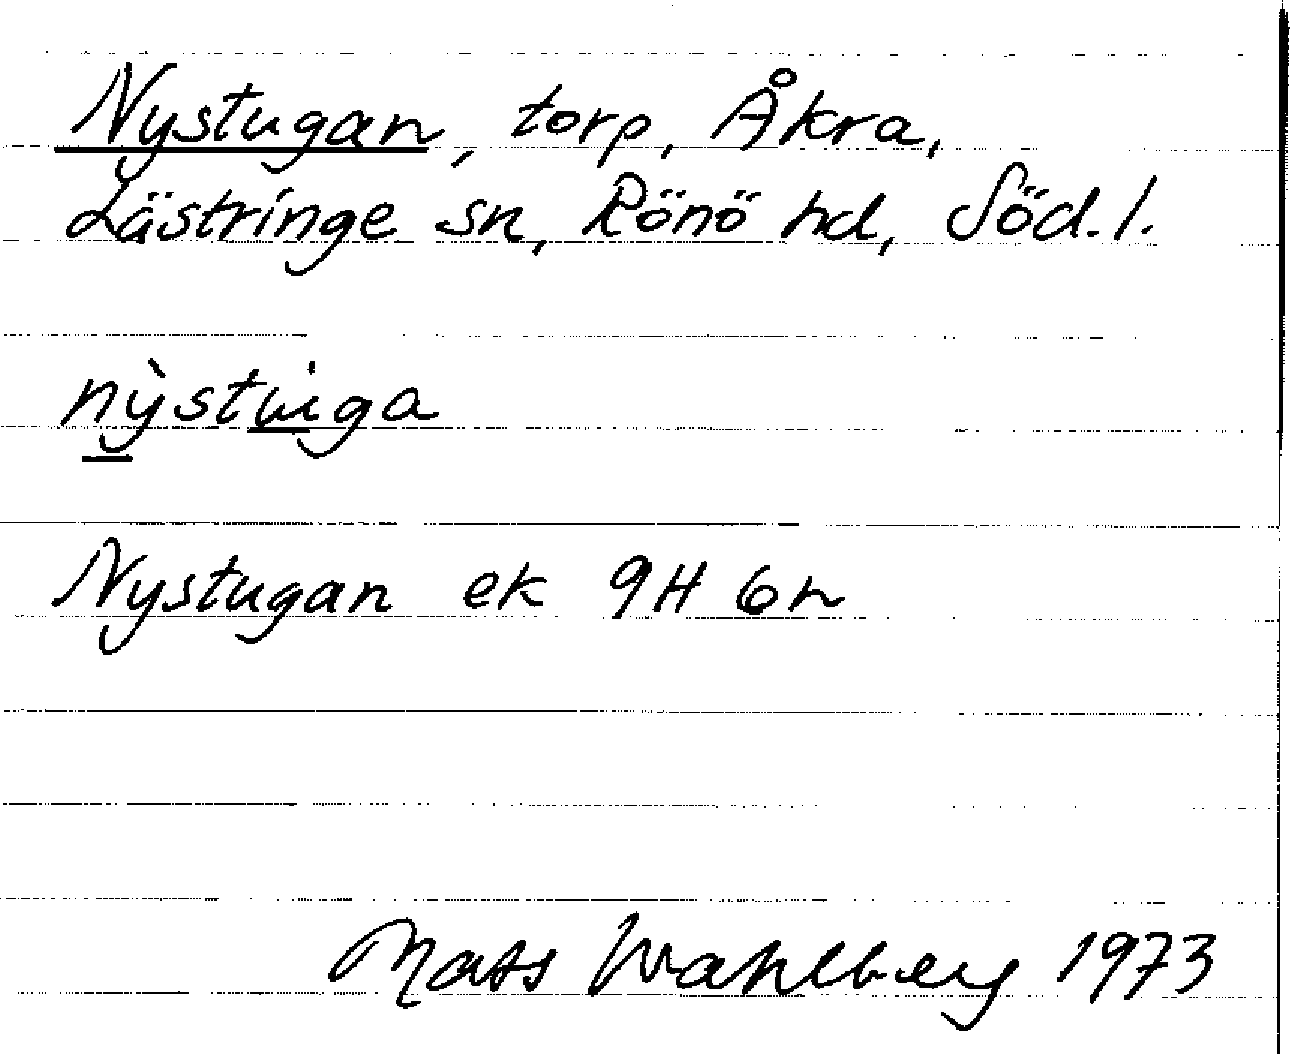 Nystugan, torp, Åkra,
Lästringe sn, Rönö hd, Söd. l.
nỳstu̇ga
Nystugan ek 9H 6h
Mats Wahlberg 1973